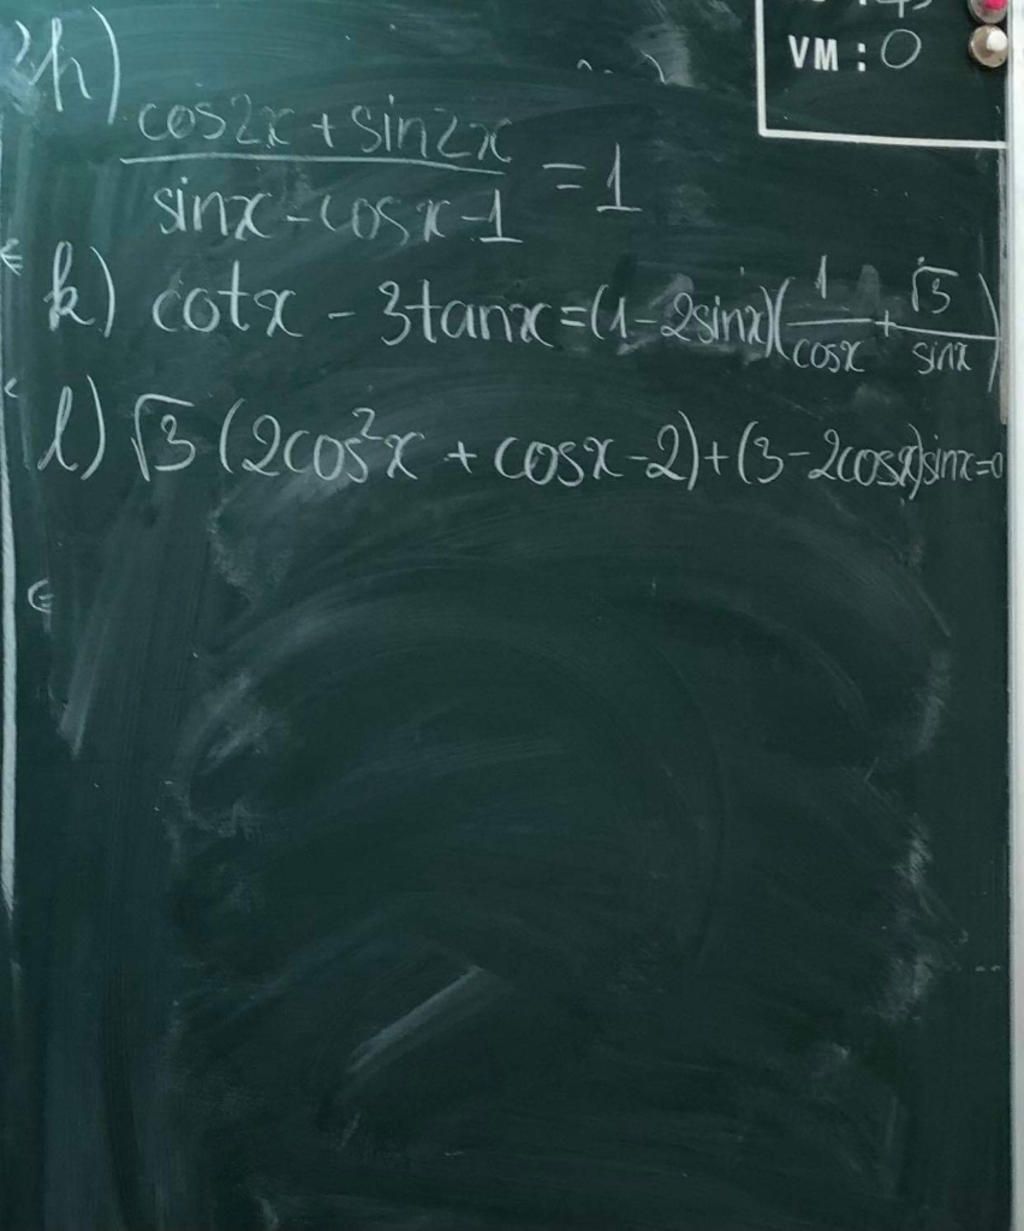 VM : 0
h)
cos2x + sin2x
/ sinx - cosx - 1 = 1
k) cotx - 3tanx = (1 - 2sinx)(1/cosx + √3/sinx)
l) √3 (2cos²x + cosx - 2) + (3 - 2cosx)sinx = 0